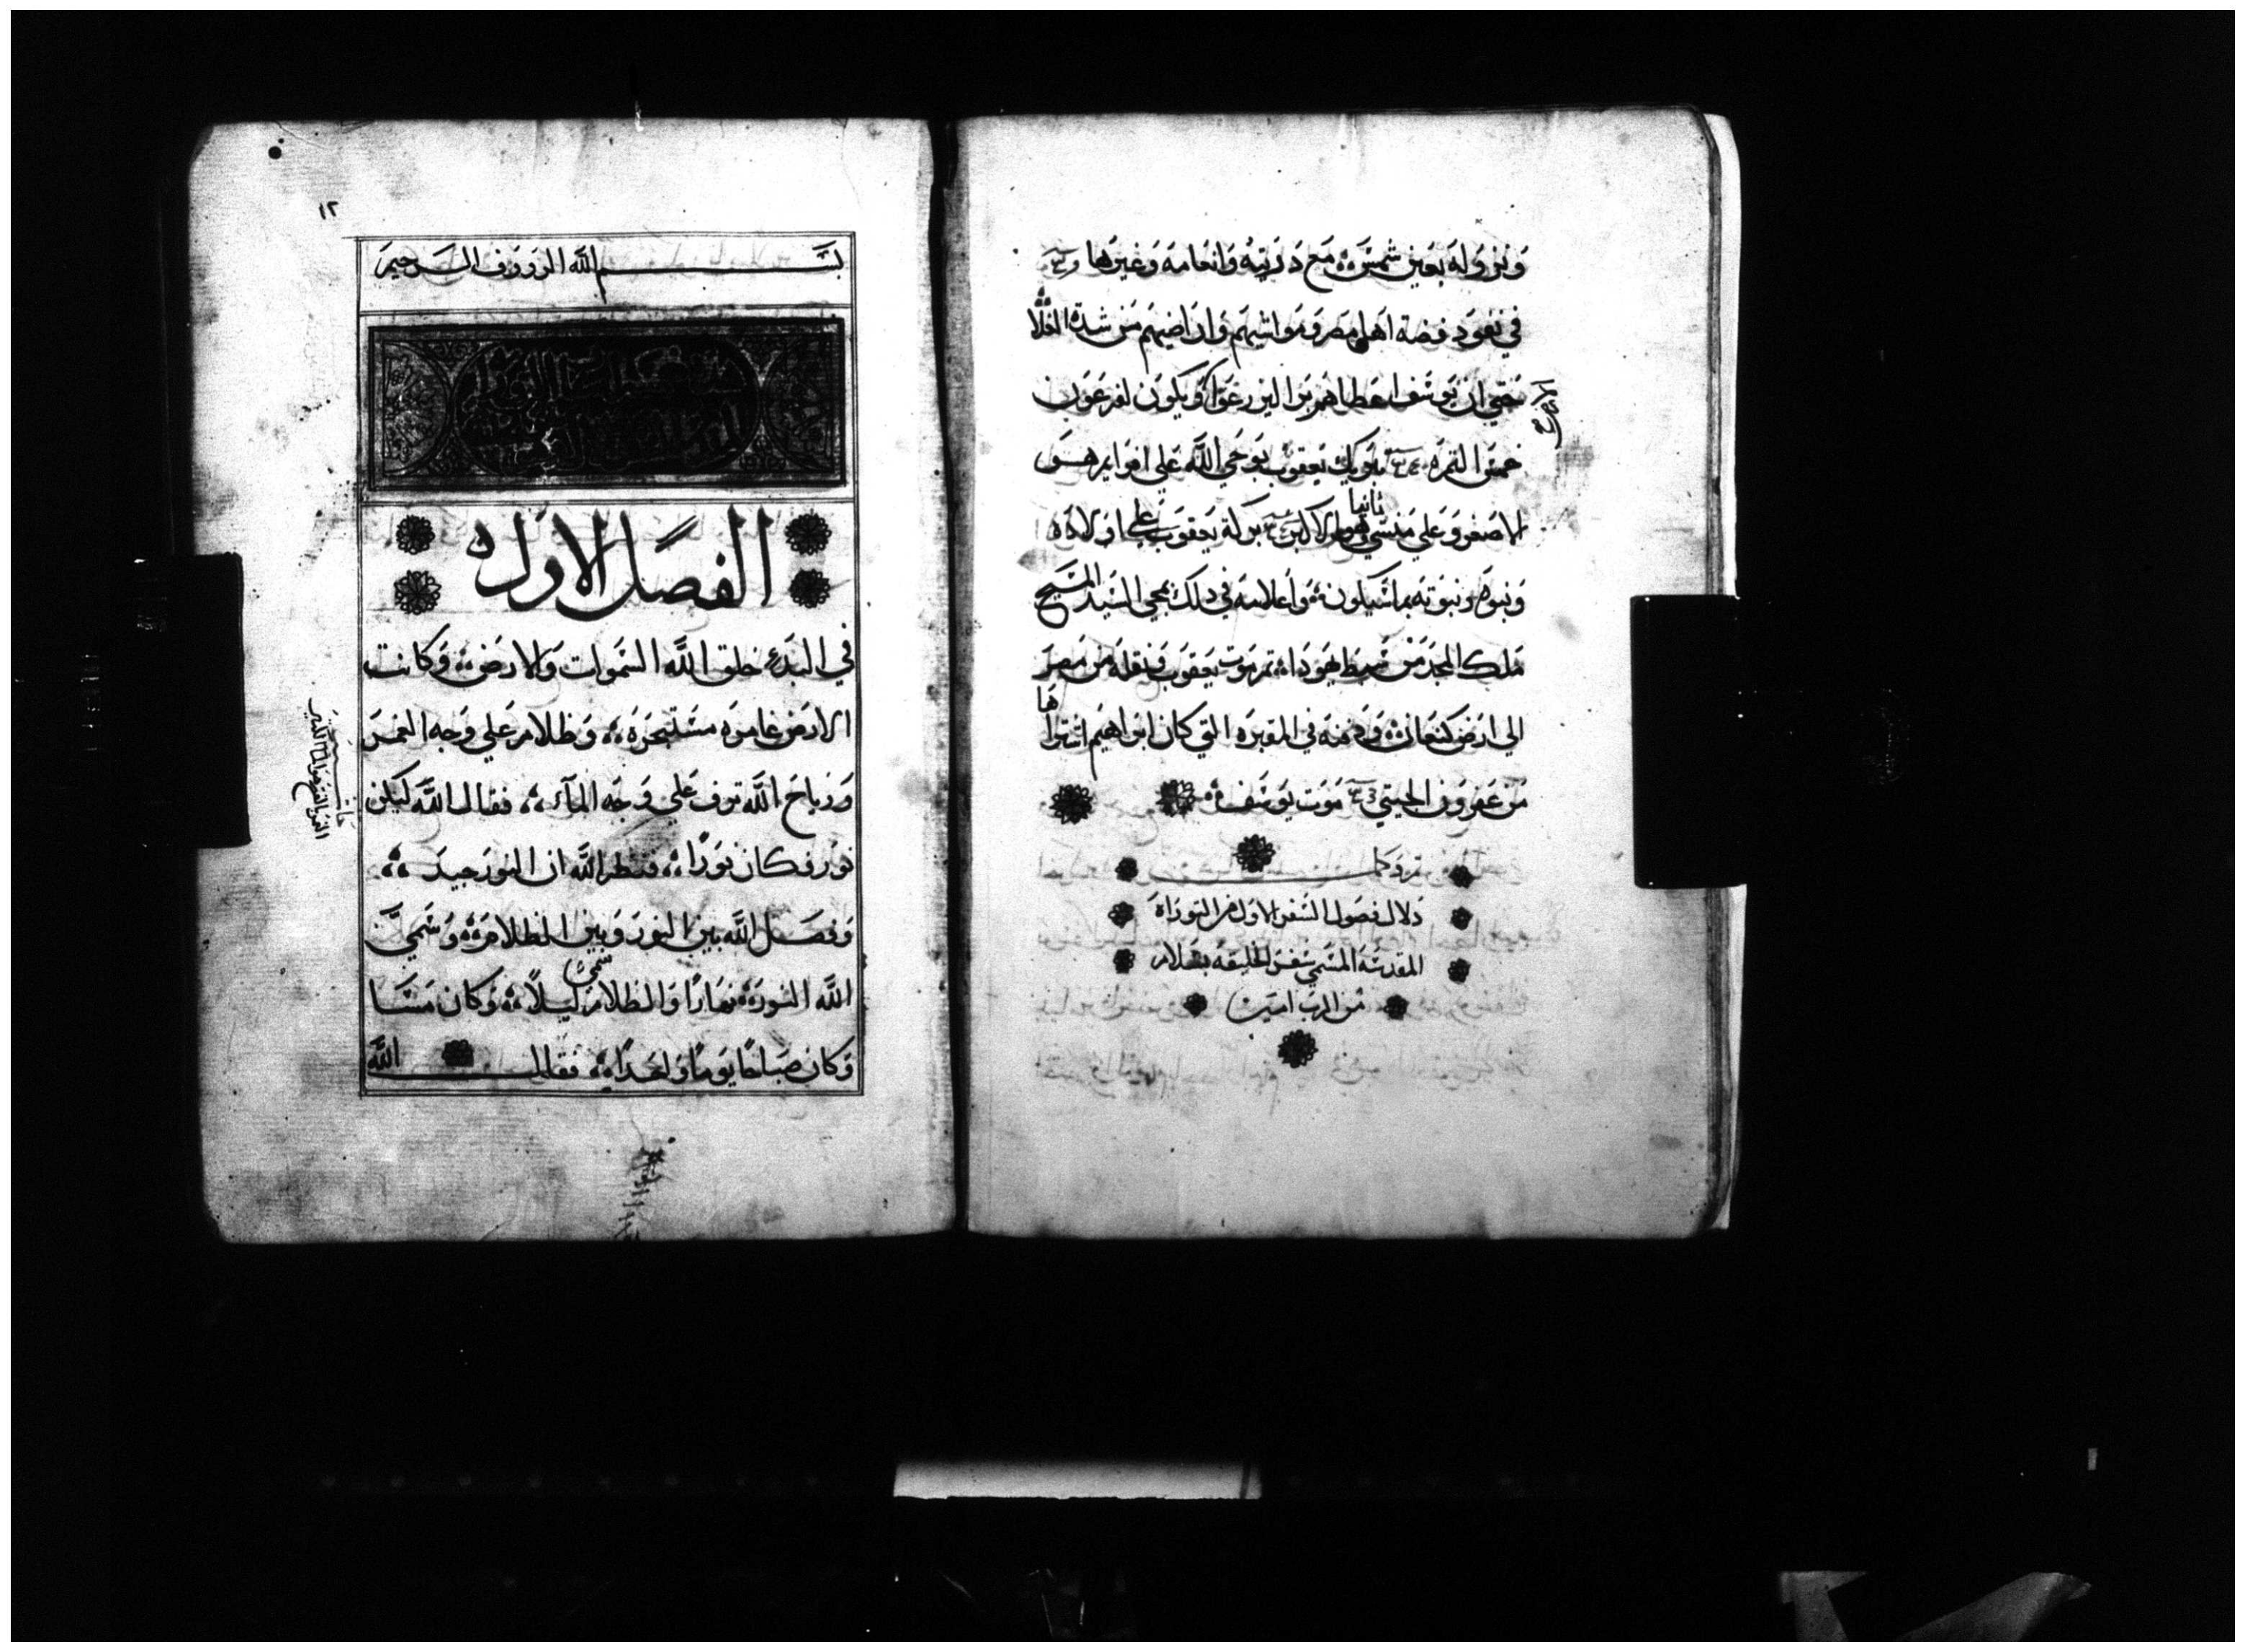 ونزوله بعين شمس مع دريته وانعامه وغيرها
في نفود فضة اهل مصر ومواشيهم واراضيهم من شدة الغلا
حتي ان يوسف اعطاهم بزرا ليزرعوا ويكون لفرعون
خمس الثمره تبريك يعقوب بوحي الله علي افرايم هو
الاصغر وعلي منسي ثانيا وهو الاكبر بركة يعقوب علي اولاده
ونبوه ونبوته بما سيكون واعلانه في دلك بمجي السيد المسيح
ملك المجد من سبط يهودا ثم موت يعقوب ونقله من مصر
الي ارض كنعان ودفنه في المقبره التي كان ابراهيم اشتراها
من عفرون الحيتي موت يوسف
تم وكمل
دلال فصول السفر الاول من التوراة
المقدسه المسمي سفر الخليقه بسلام
من الرب امين
١٢
بسم الله الرووف الرحيم
الفصل الاول
في البدء خلق الله السموات والارض وكانت
الارض غامره مستبحره وظلام علي وجه الغمر
ورياح الله ترف علي وجه المآء فقال الله ليكن
نور فكان نورًا فنظر الله ان النور جيد
وفصل الله بين النور وبين الظلام وسمي
الله النور نهارًا والظلام سمي ليلًا وكان مسا
وكان صباحًا يومًا واحدًا فقال الله